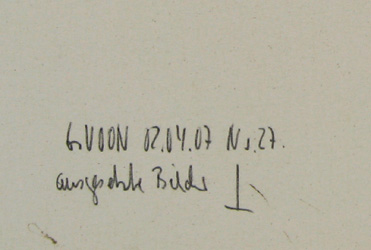 L.VOON 02.04.07 Nr.27.
ausgesetzte Bilder